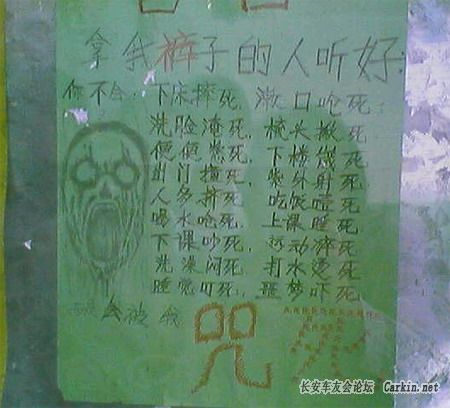 拿我裤子的人听好:
你不会: 下床摔死, 漱口呛死:
洗脸淹死, 梳头揪死
便便熏死, 下楼 死
出门撞死, 紫外射死
人多挤死, 吃饭噎死
喝水呛死, 上课睡死
下课吵死, 运动猝死
洗澡闷死, 打水烫死
睡觉叮死, 噩梦吓死
会被我 咒 死
长安车友会论坛 Carkin.net